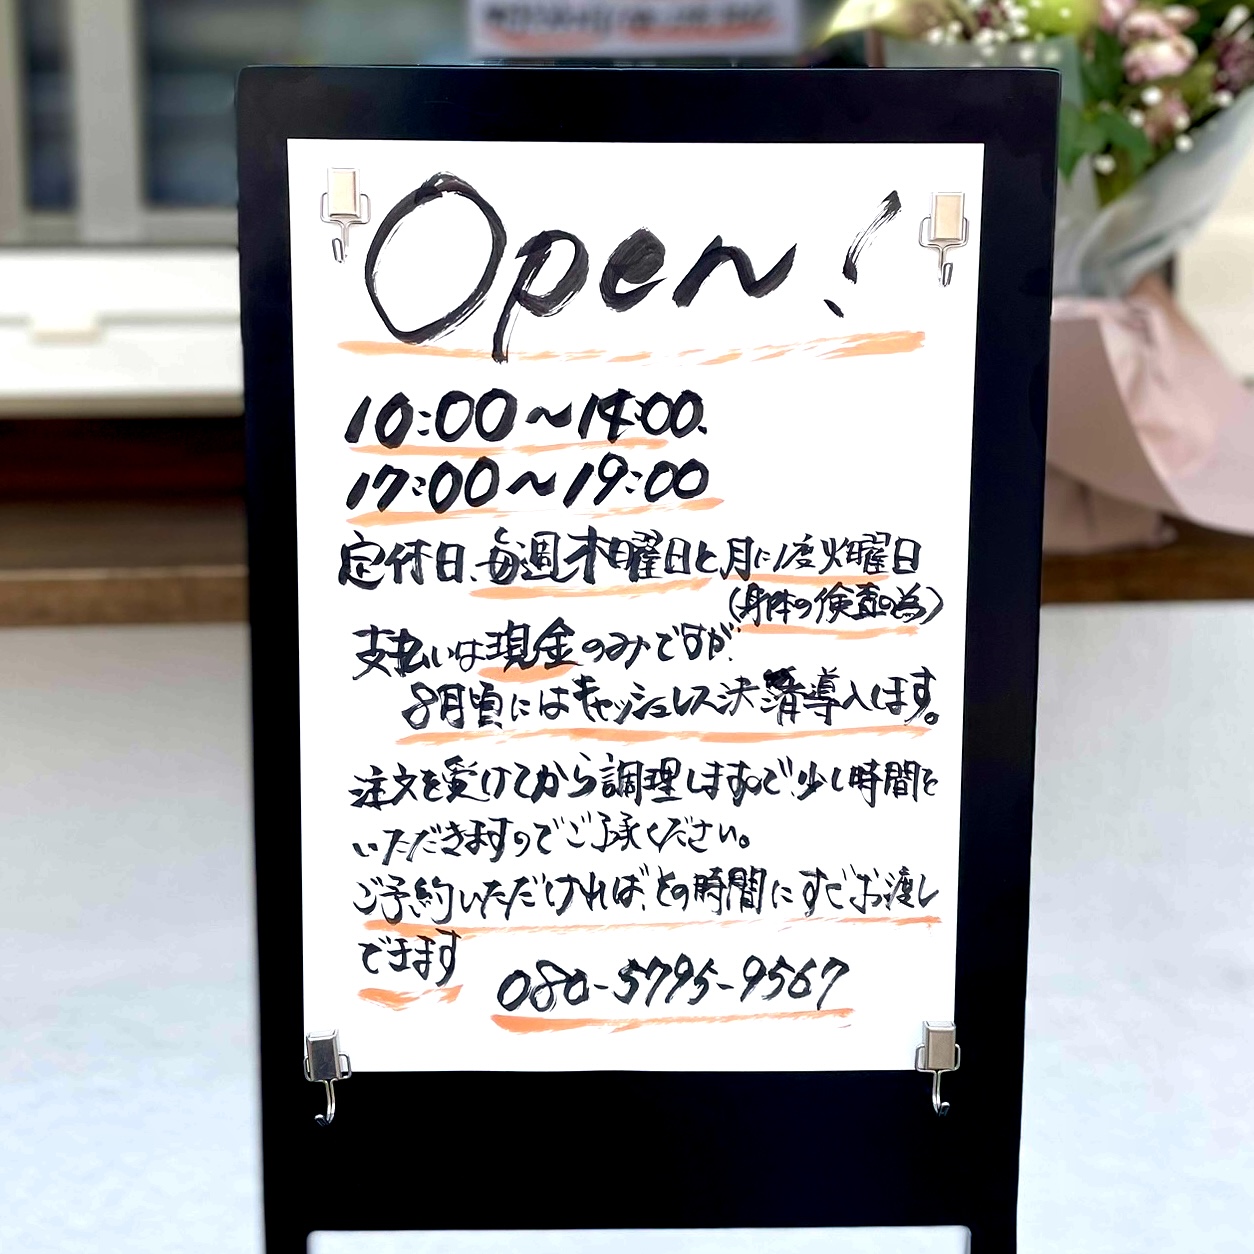 Open!
10:00～14:00.
17:00～19:00
定休日、毎週木曜日と月に1度火曜日
(身体の検査の為)
支払いは現金のみですが、
8月頃にはキャッシュレス決済導入します。
注文を受けてから調理しますので少し時間を
いただきますのでご了承ください。
ご予約いただければ、その時間にすぐお渡し
できます
080-5795-9567